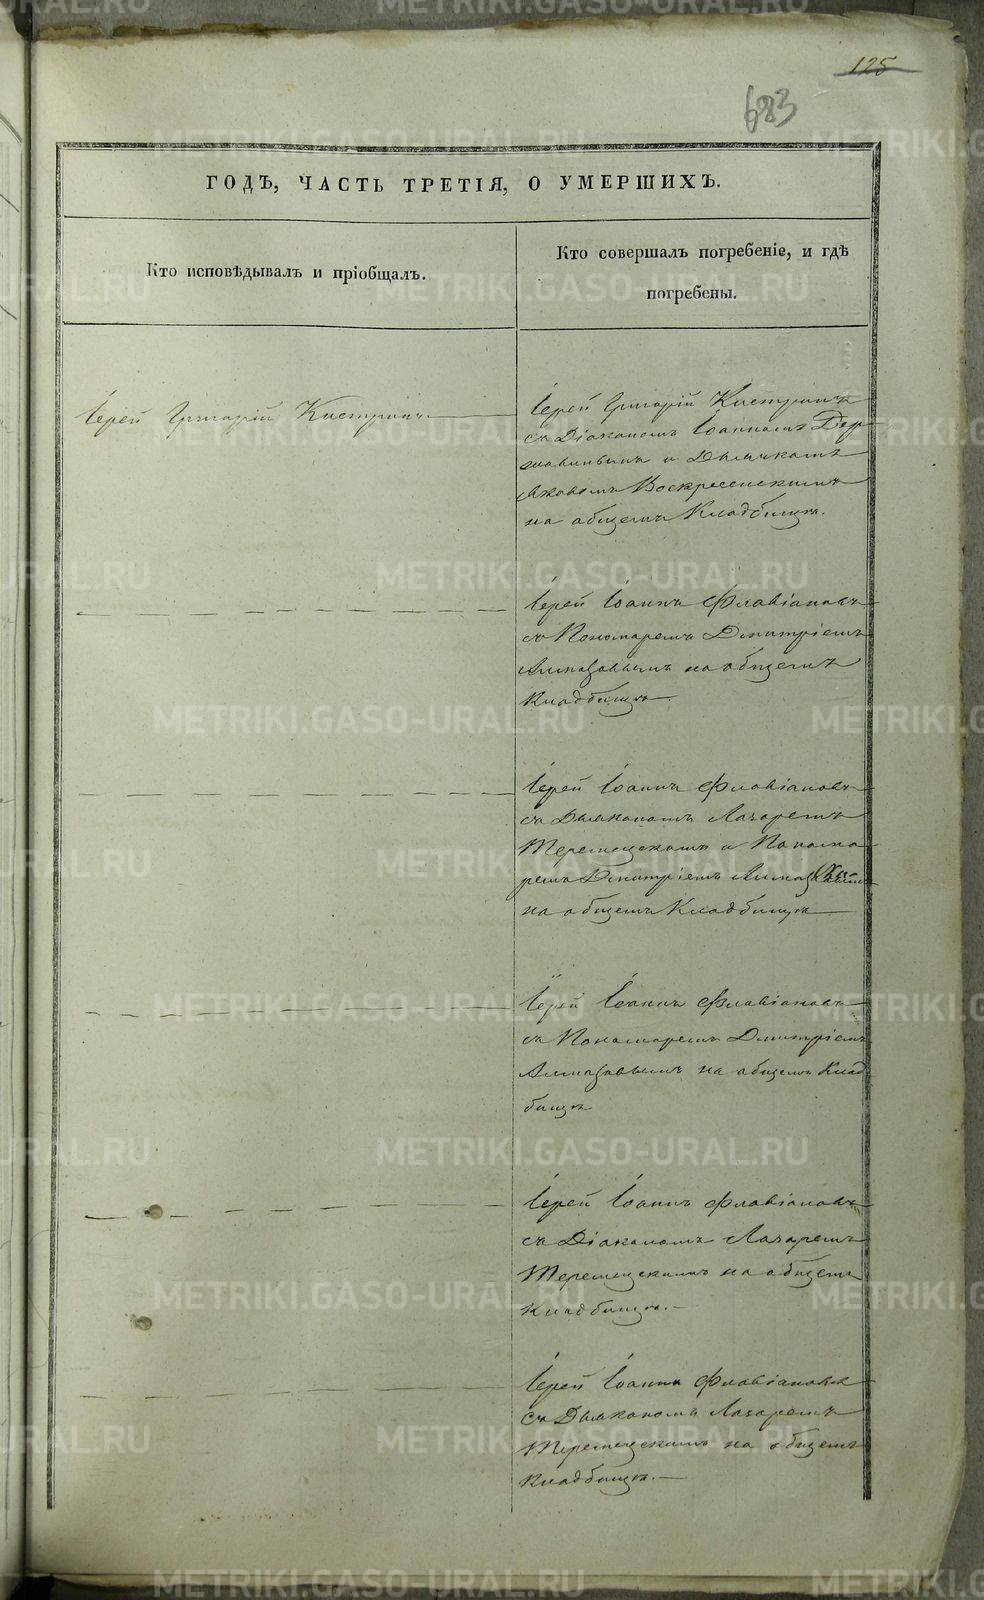 125
683
ГОДЪ, ЧАСТЬ ТРЕТІЯ, О УМЕРШИХЪ.
Кто исповѣдывалъ и пріобщалъ.
Кто совершалъ погребеніе, и гдѣ
погребены.
Іерей Григорій Кастринъ
Іерей Григорій Кастринъ
съ Діакономъ Іоанномъ Дер-
жавинымъ и Дьячкомъ
Воскресенскимъ
на общемъ Кладбищѣ.
Іерей Іоаннъ Флавіановъ
съ Пономаремъ Димитріемъ
Алмазовымъ на общемъ
Кладбищѣ.
Іерей Іоаннъ Флавіановъ
съ Дьякономъ Лазаремъ
и Понома-
ремъ Димитріемъ
на общемъ Кладбищѣ
Іерей Іоаннъ Флавіановъ
съ Пономаремъ Димитріемъ
Алмазовымъ на общемъ Клад
бищѣ
Іерей Іоаннъ Флавіановъ
съ Діакономъ Лазаремъ
на общемъ
Кладбищѣ.
Іерей Іоаннъ Флавіановъ
съ Дьякономъ Лазаремъ
на общемъ
Кладбищѣ.
METRIKI.GASO-URAL.RU